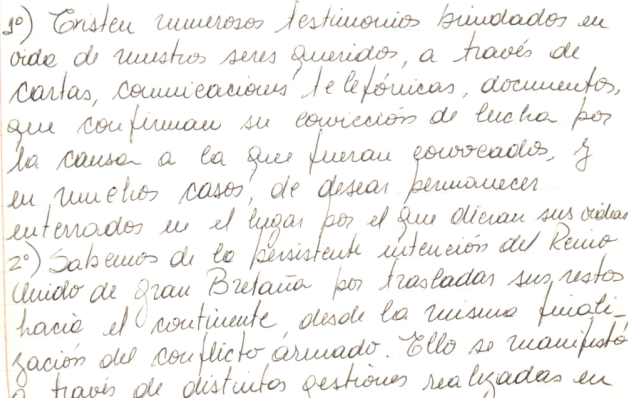 1º) Existen numerosos testimonios brindados en
vida de nuestros seres queridos, a través de
cartas, comunicaciones telefónicas, documentos,
que confirman su convicción de lucha por
la causa a la que fueran convocados, y
en muchos casos, de desear permanecer
enterrados en el lugar por el que dieran sus vidas
2º) Sabemos de la persistente intención del Reino
Unido de Gran Bretaña por trasladar sus restos
hacia el continente, desde la misma finali-
zación del conflicto armado. Ello se manifestó
a través de distintas gestiones realizadas en